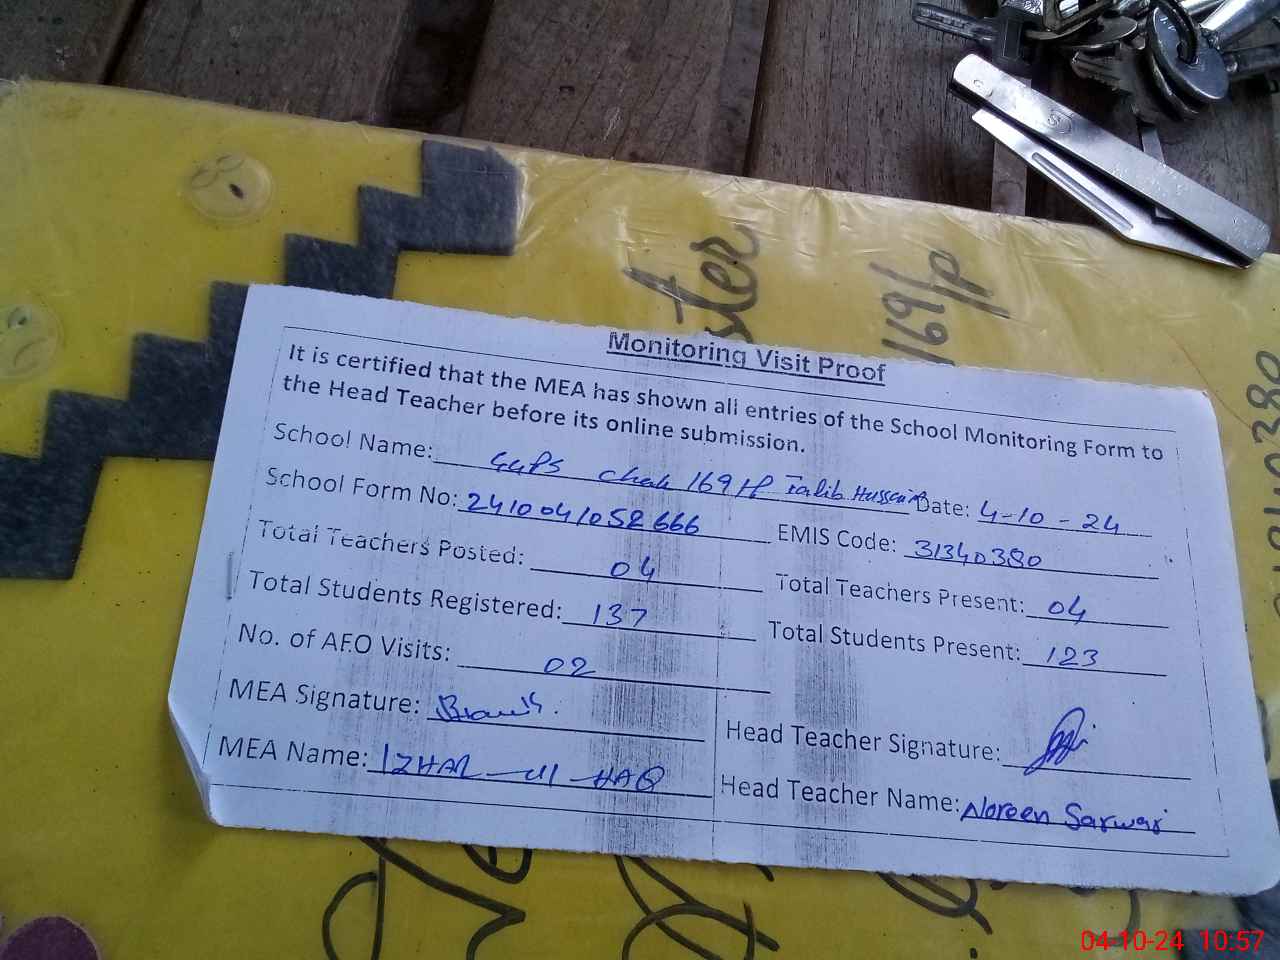 ster
169/p
Monitoring Visit Proof
It is certified that the MEA has shown all entries of the School Monitoring Form to
the Head Teacher before its online submission.
School Name: GGPS Chak 169 P Talib Hussain Date: 4-10-24
School Form No: 2410041052666 EMIS Code: 31340380
Total Teachers Posted: 04 Total Teachers Present: 04
Total Students Registered: 137 Total Students Present: 123
No. of AEO Visits: 02
MEA Signature:
Head Teacher Signature:
MEA Name: IZHAR-ul-HAQ Head Teacher Name: Noreen Sarwar
04-10-24 10:57